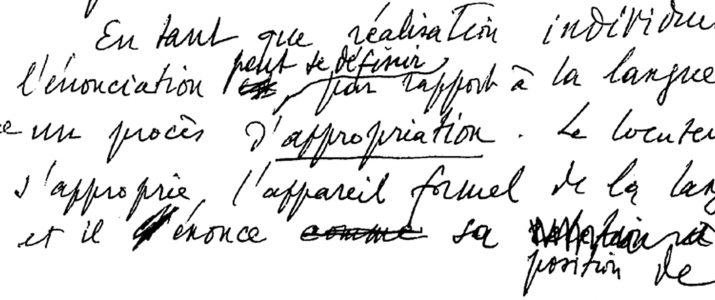 En tant que réalisation individu
peut se définir
l'énonciation par rapport à la langue
un procès d'appropriation. Le locuteu
s'approprie l'appareil formel de la lang
et il énonce comme sa
position de